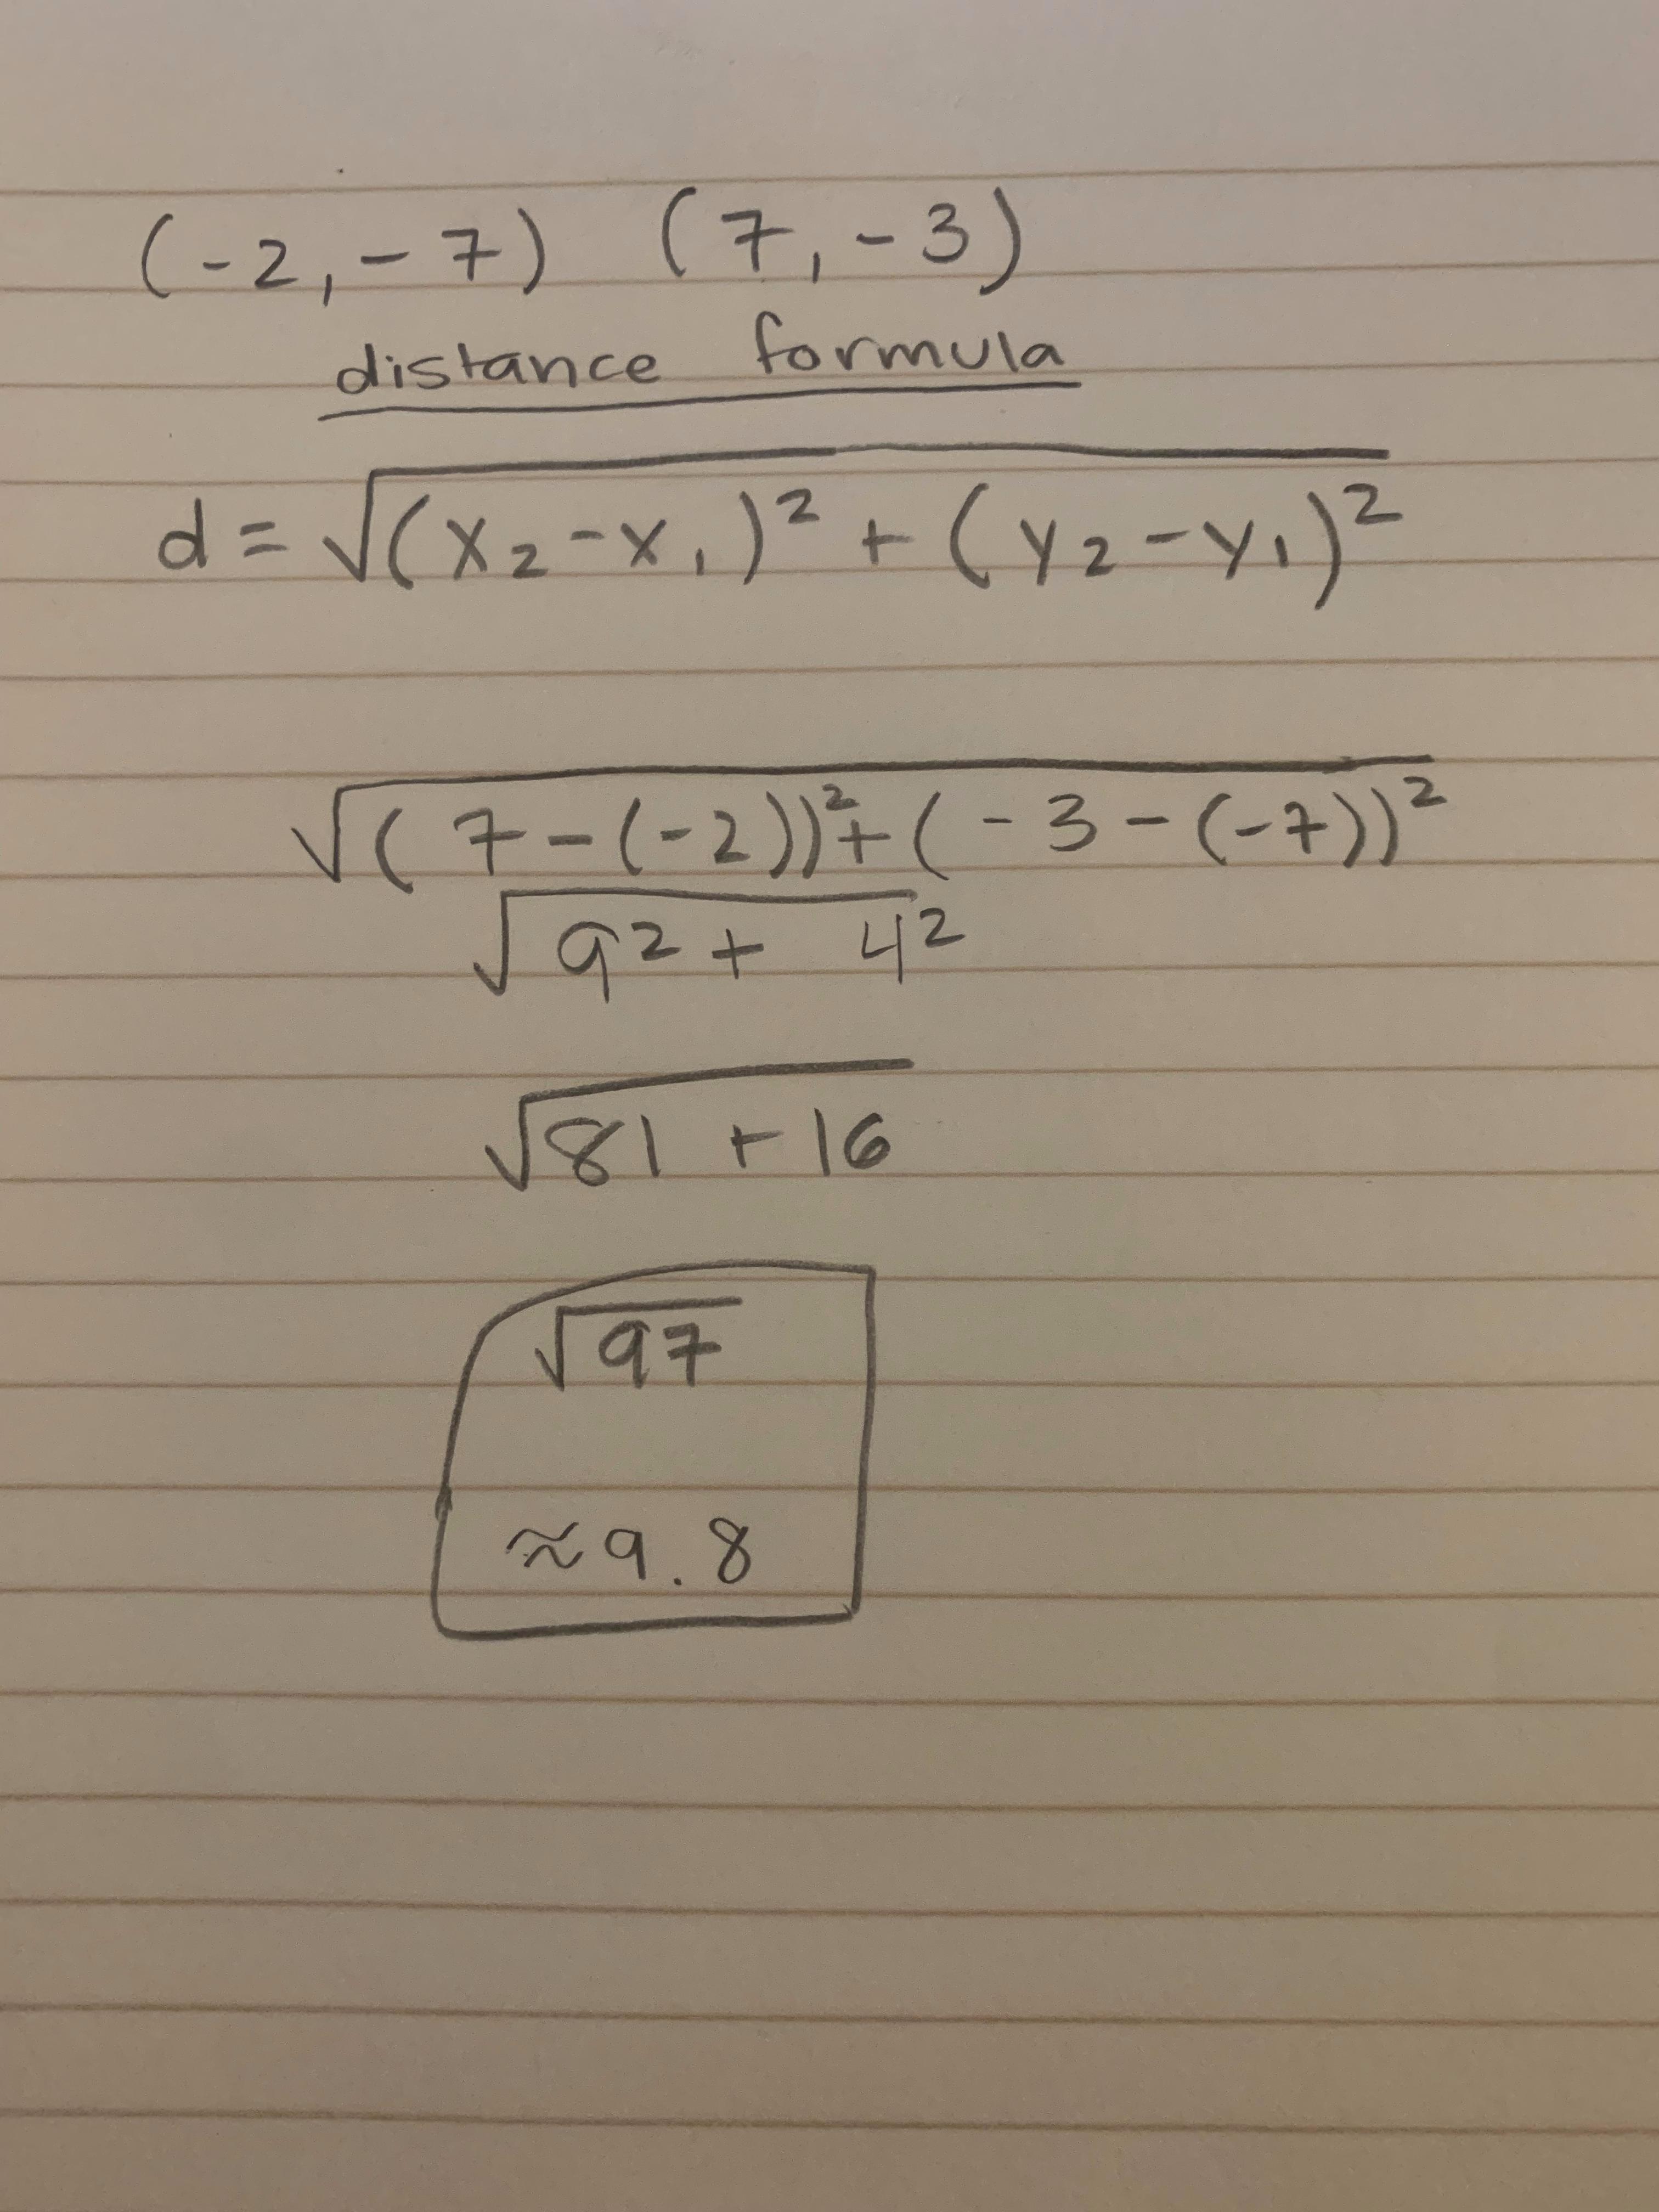 (-2, -7) (7, -3)
distance formula
d = √(x₂-x₁)² + (y₂-y₁)²
√(7-(-2))² + (-3-(-7))²
√9² + 4²
√81 + 16
√97
≈9.8